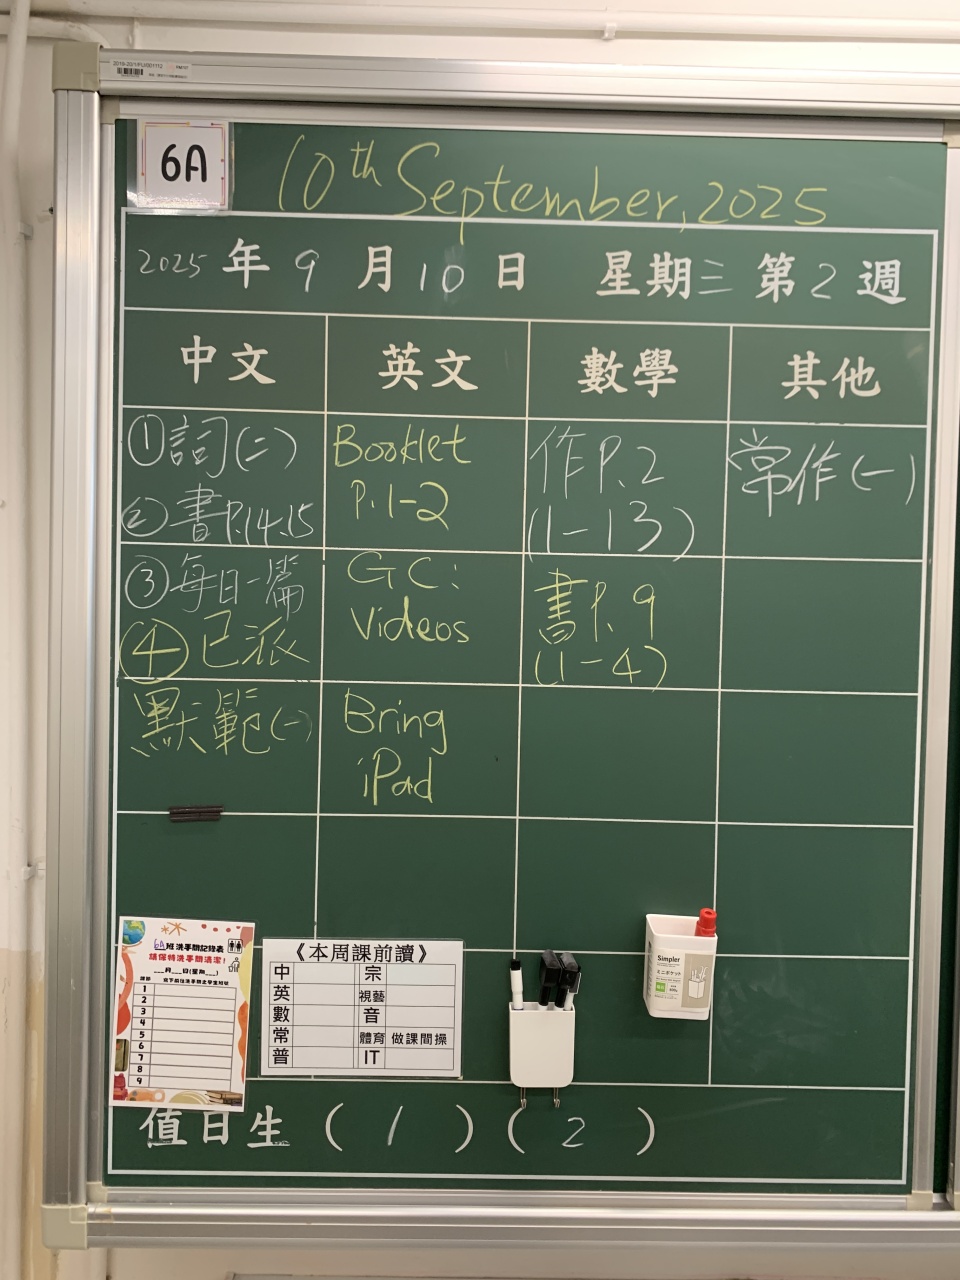 6A
10th September, 2025
2025 年 9 月 10 日 星期三 第 2 週
中文
英文
數學
其他
①詞(二)
②書P.14-15
③每日一篇
④已派
默範(一)
Booklet
P.1-2
GC:
Videos
Bring
iPad
作P.2
(1-13)
書P.9
(1-4)
常作(一)
6A班洗手間記錄表
請保持洗手間清潔!
___月___日(星期___)
1
2
3
4
5
6
7
8
9
《本周課前讀》
中 宗
英 視藝
數 音
常 體育 做課間操
普 IT
Simpler
ミニポケット
值日生 ( 1 ) ( 2 )